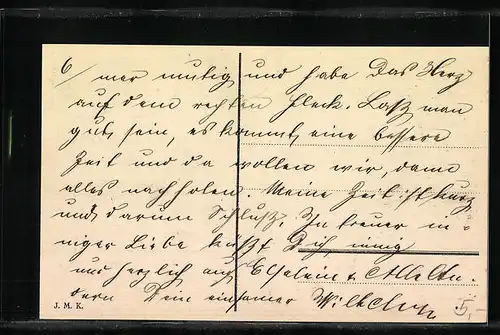 6/ mer mutig und habe das Herz
auf dem rechten Fleck. Laß man
gut sein, es kommt eine bessere
Zeit und da wollen wir, dann
alles nachholen. Meine Zeit ist kurz
und darum Schluß. In treuer in-
niger Liebe küßt Dich innig
und herzlich auch
dern Dein einsamer
J. M. K.
5,-